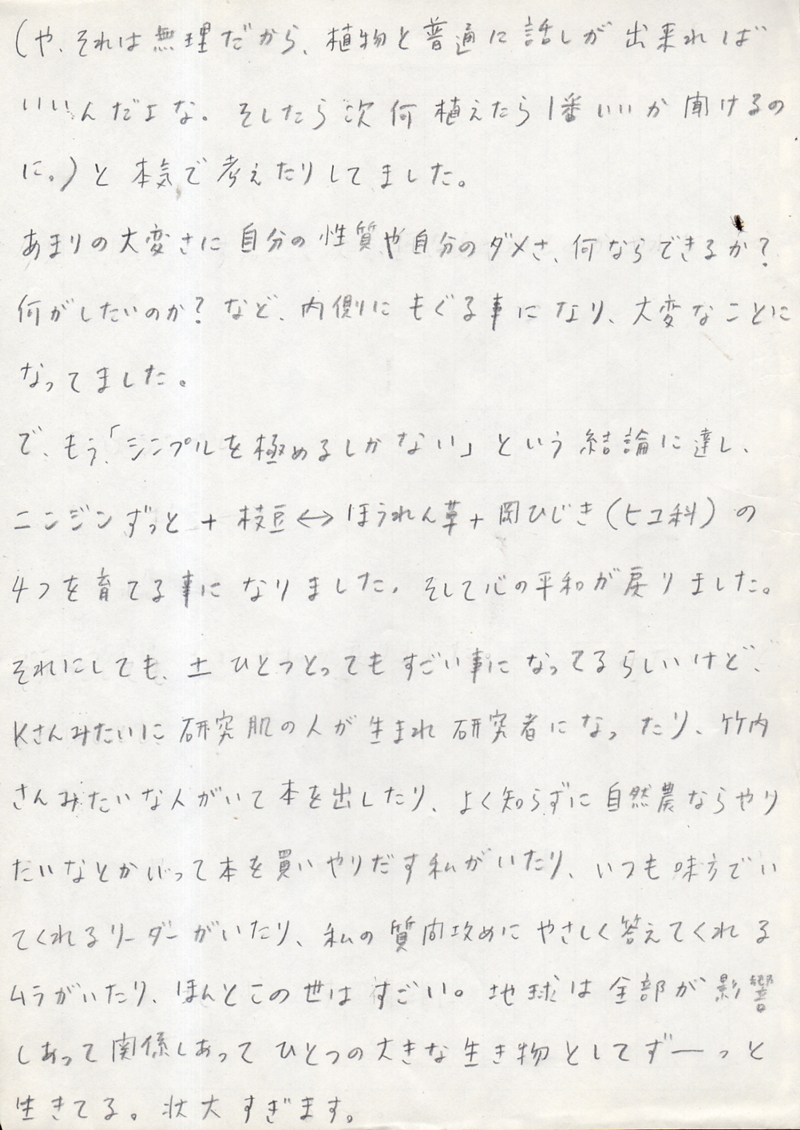 (や、それは無理だから、植物と普通に話しが出来れば
いいんだよな。そしたら次何植えたら1番いいか聞けるの
に。)と本気で考えたりしてました。
あまりの大変さに自分の性質や自分のダメさ、何ならできるか?
何がしたいのか?など、内側にもぐる事になり、大変なことに
なってました。
で、もう、「シンプルを極めるしかない」という結論に達し、
ニンジンずっと+枝豆↔ほうれん草+岡ひじき(ヒユ科)の
4つを育てる事になりました。そして心の平和が戻りました。
それにしても、土ひとつとってもすごい事になってるらしいけど、
Kさんみたいに研究肌の人が生まれ研究者になったり、竹内
さんみたいな人がいて本を出したり、よく知らずに自然農ならやり
たいなとかいって本を買いやりだす私がいたり、いつも味方でい
てくれるリーダーがいたり、私の質問攻めにやさしく答えてくれる
ムラがいたり、ほんとこの世はすごい。地球は全部が影響
しあって関係しあってひとつの大きな生き物としてずーっと
生きてる。壮大すぎます。